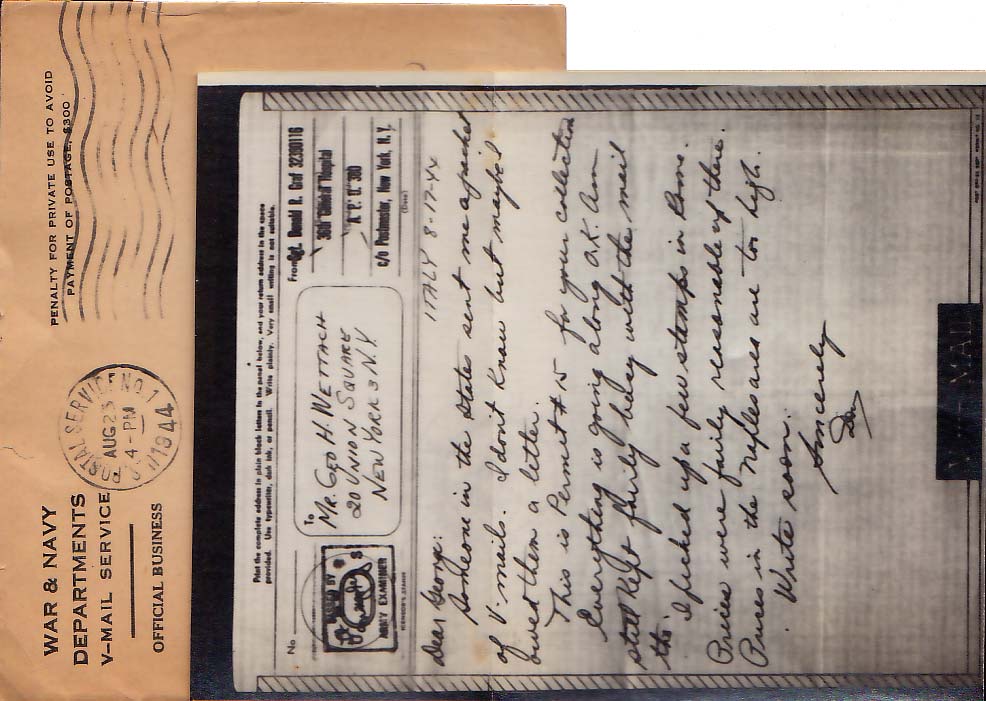 WAR & NAVY
DEPARTMENTS
V-MAIL SERVICE
OFFICIAL BUSINESS
POSTAL SERVICE NO. 1
AUG 23
4-PM
1944
PENALTY FOR PRIVATE USE TO AVOID
PAYMENT OF POSTAGE, $300
Print the complete address in plain block letters in the panel below, and your return address in the space
provided. Use typewriter, dark ink, or pencil. Write plainly. Very small writing is not suitable.
No.
PASSED BY
ARMY EXAMINER
(CENSOR'S STAMP)
To
MR. GEO H. WETTACH
20 UNION SQUARE
NEW YORK 3 N.Y.
From
Sgt. Donald R. 32300116
Hospital
A.P.O. 
c/o Postmaster, New York, N.Y.
(Date)
ITALY 8-17-44
Dear George:
Someone in the States sent me a packet
of V-mails. I dont know but maybe I
owed them a letter.
This is Permit # 15 for your collection
Everything is going along O.K. Am
still kept fairly busy with the mail
tho'
I picked up a few stamps in Rome.
Prices were fairly reasonable up there.
Prices in the Naples area are to high.
Write soon.
Sincerely
Don
V--MAIL